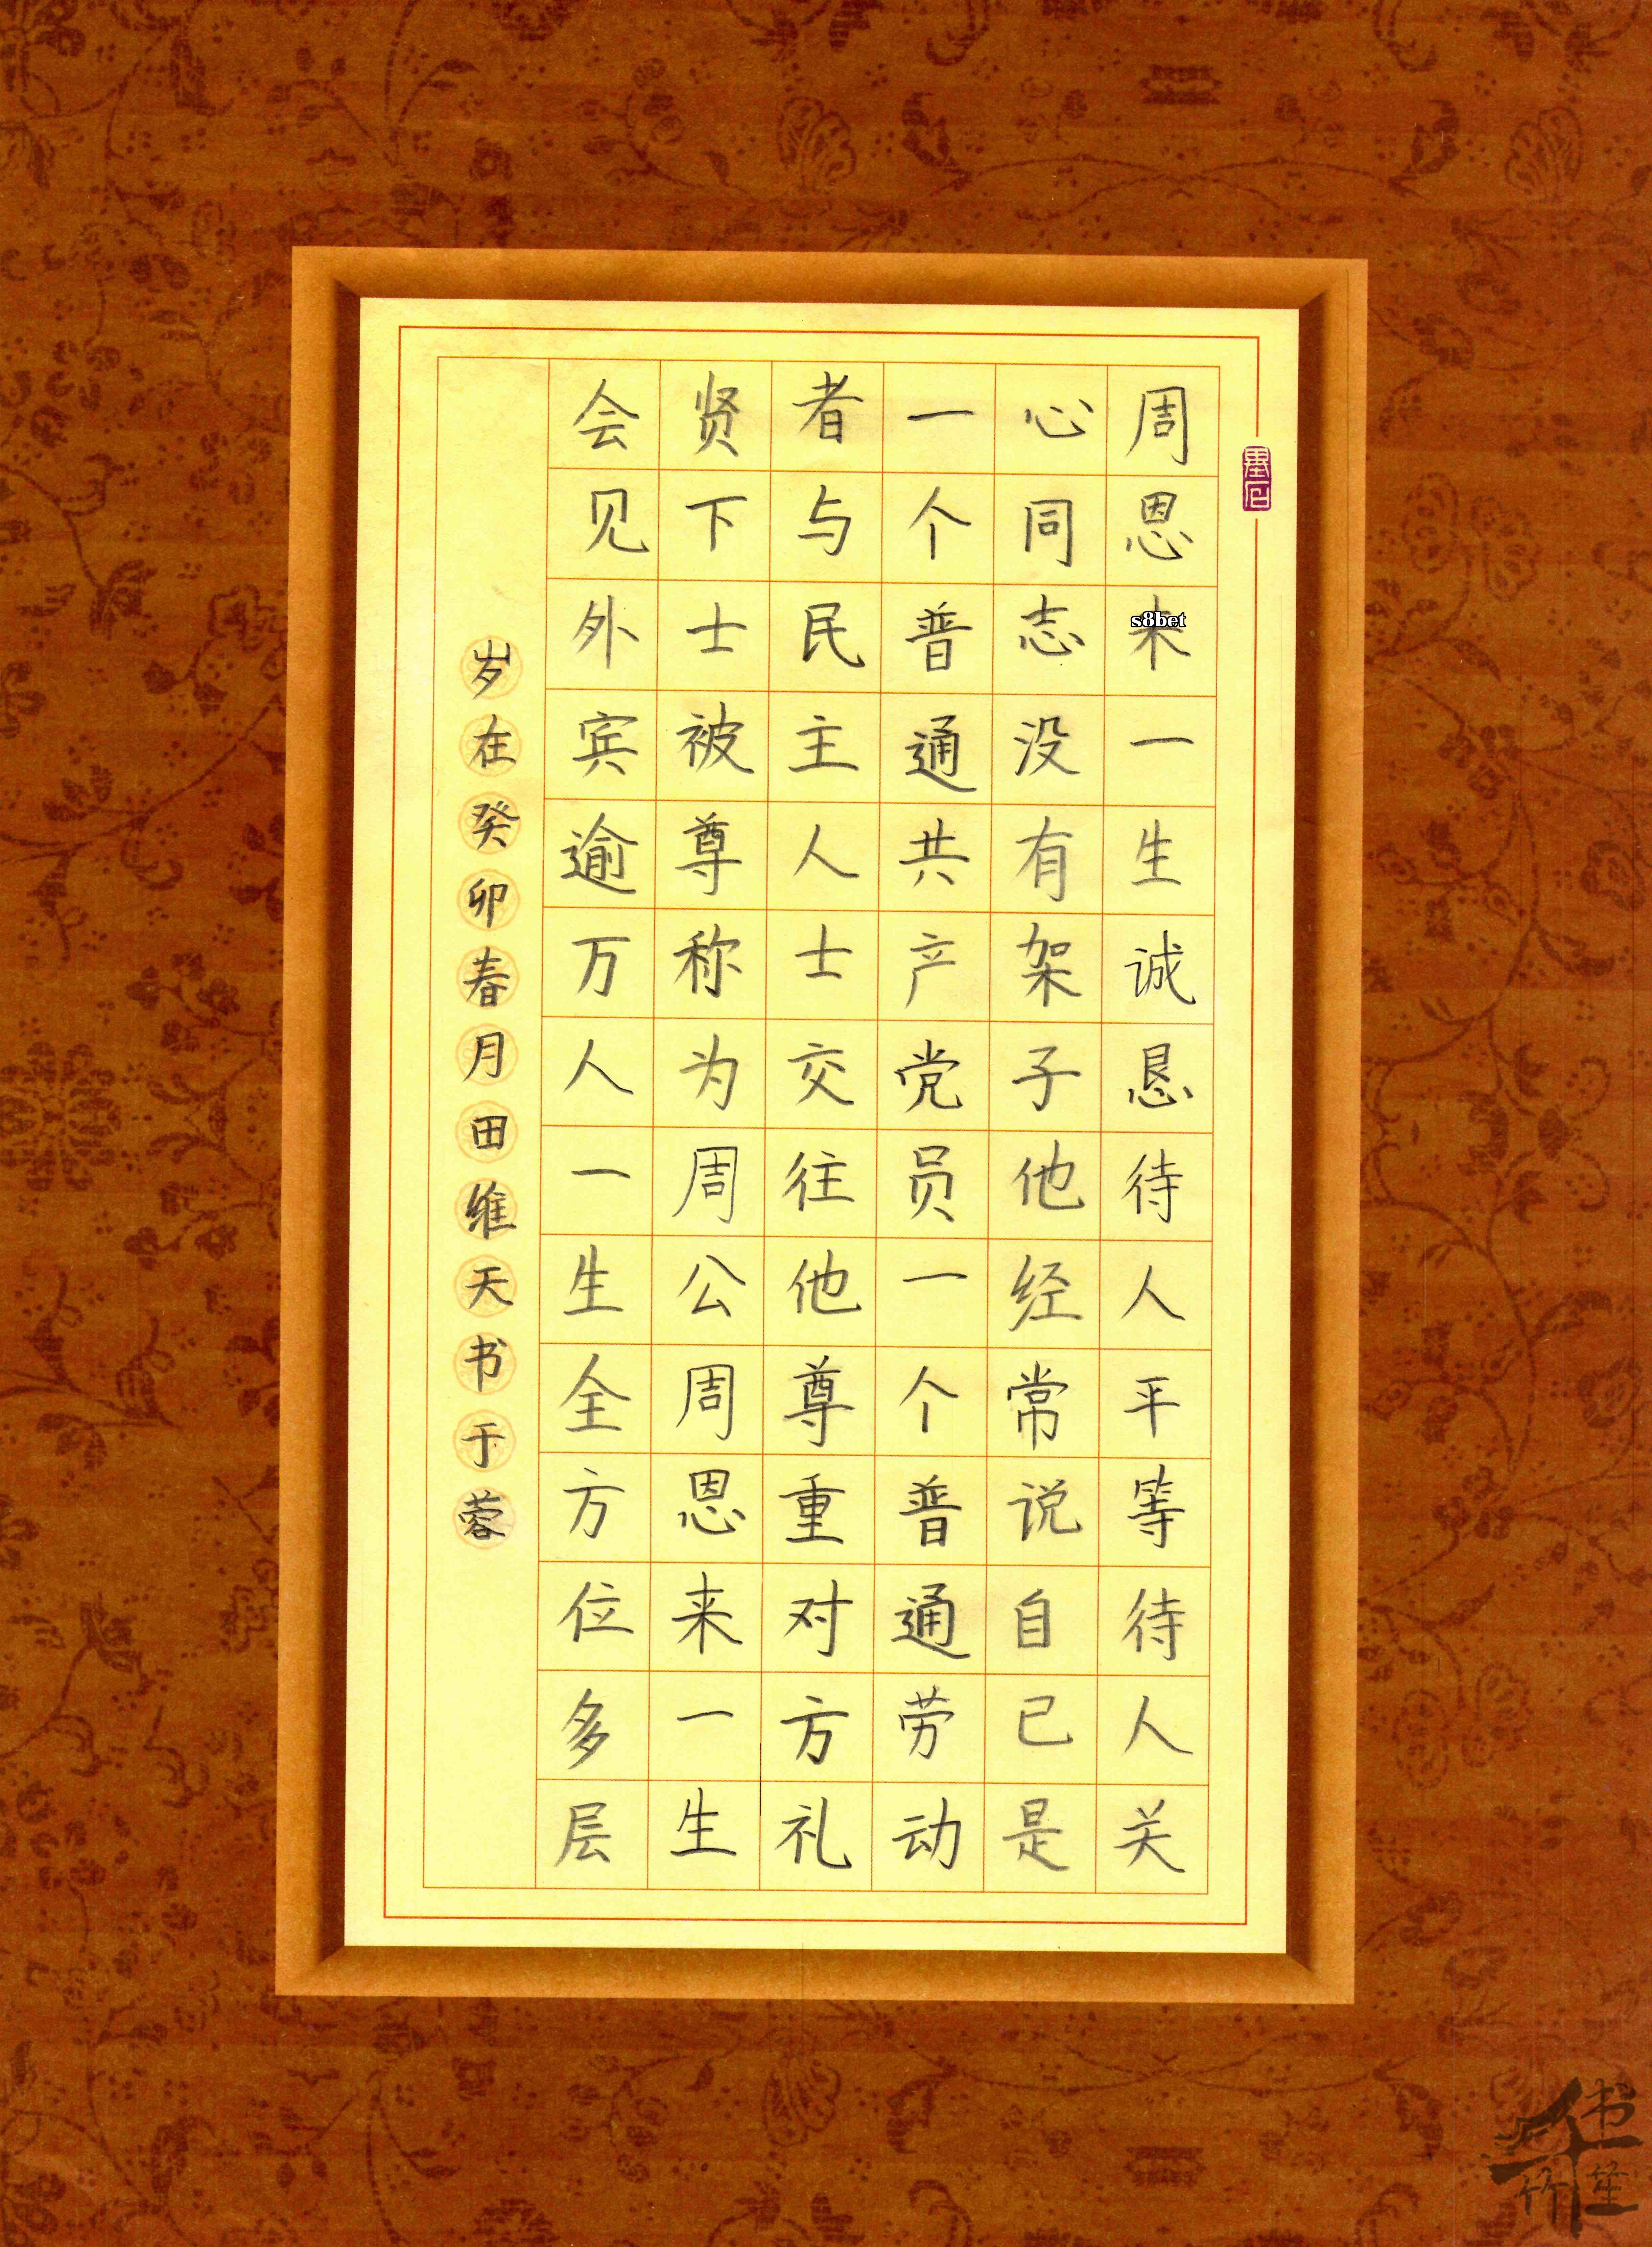 周恩来一生诚恳待人平等待人关
心同志没有架子他经常说自己是
一个普通共产党员一个普通劳动
者与民主人士交往他尊重对方礼
贤下士被尊称为周公周恩来一生
会见外宾逾万人一生全方位多层
岁在癸卯春月田维天书于蓉
s8bet